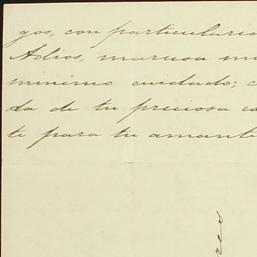 gos, con particularid
Adios, marusa mi
minimo cuidado; c
da de tu preciosa ca
te para tu amante